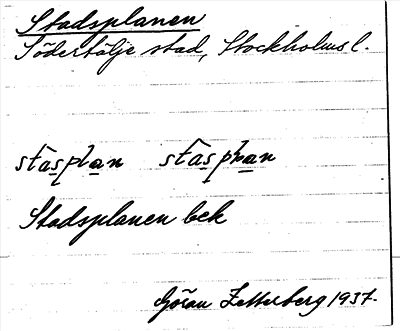 Stadsplanen
Södertälje stad, Stockholms l.
stasplan stasplan
Stadsplanen bek
Göran Zetterberg 1937.